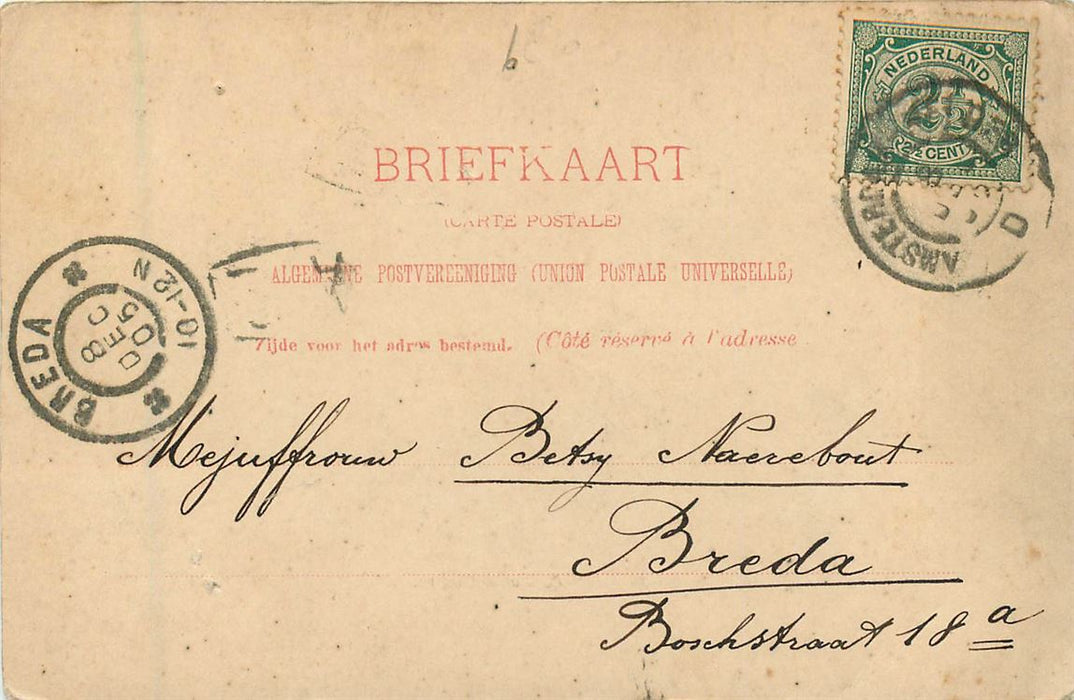 NEDERLAND
2½
2½ CENT
BRIEFKAART
(CARTE POSTALE)
ALGEMEENE POSTVEREENIGING (UNION POSTALE UNIVERSELLE)
Zijde voor het adres bestemd. (Côté réservé à l'adresse
BREDA
10-12 N
8 DEC 05
Mejuffrouw Betsy Naerebout
Breda
Boschstraat 18 a